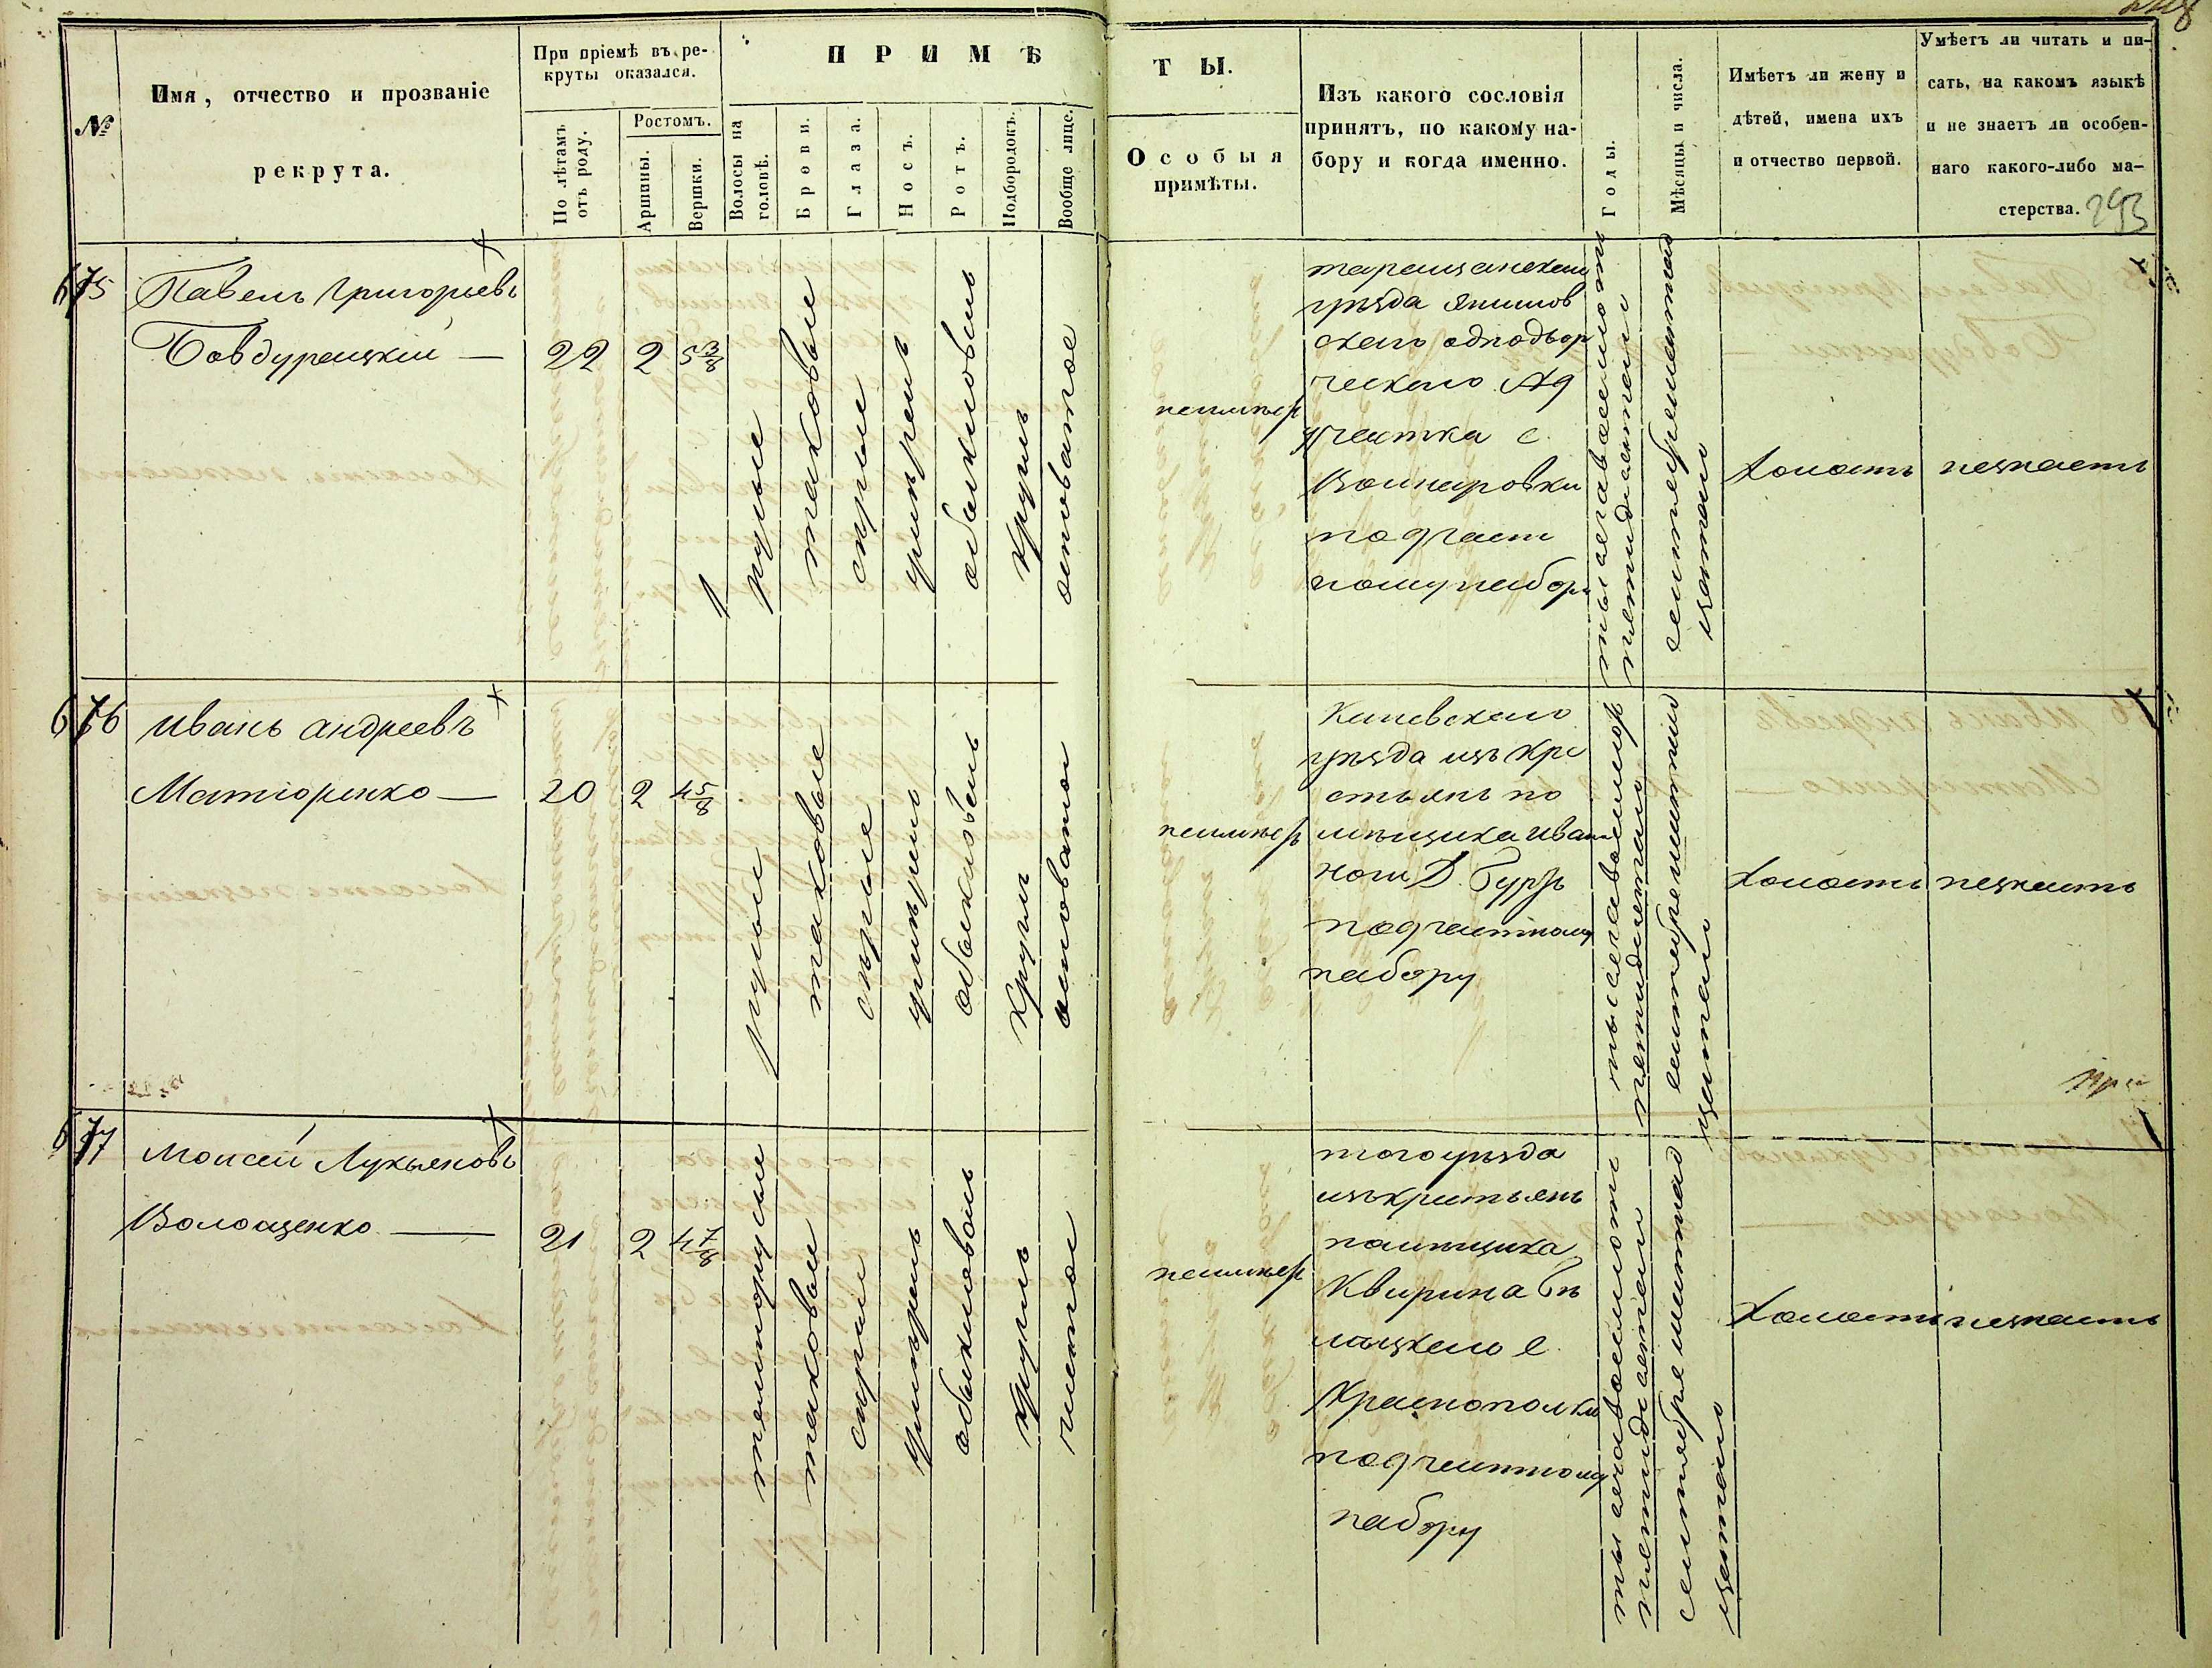 №
Имя, отчество и прозваніе
рекрута.
При пріемѣ въ ре-
круты оказался.
По лѣтамъ
отъ роду.
Ростомъ.
Аршины.
Вершки.
ПРИМѢ
Волосы на
головѣ.
Брови.
Глаза.
Носъ.
Ротъ.
Подбородокъ.
Вообще лице.
ТЫ.
Особыя
примѣты.
Изъ какого сословія
принятъ, по какому на-
бору и когда именно.
Годы.
Мѣсяцы и числа.
Имѣетъ ли жену и
дѣтей, имена ихъ
и отчество первой.
Умѣетъ ли читать и пи-
сать, на какомъ языкѣ
и не знаетъ ли особен-
наго какого-либо ма-
стерства.
293
675
Павелъ Григорьевъ
Бовдурецкій —
22
2
5 3/8
русые
таковые
сѣрые
умѣрен
обыкновень
круглъ
неимѣер
таращанскаго
уѣзда
скаго однодвор
ческаго
участка с.
под част
ному набору
тысяча восемсотъ
пятидесятаго
сентября шестнад
цатаго
холостъ
незнаетъ
676
Иванъ Андреевъ
Матюренко —
20
2
4 5/8
русые
таковые
сѣрые
умѣрен
обыкновень
круглъ
неимѣер
Киевскаго
уѣзда изъ кре
стьянъ по
мѣщика Иван
под частному
набору
тысяча восемсот
пятидесятаго
холостъ
незнаетъ
677
Моисей Лукьяновъ
Волощенко —
21
2
4 7/8
темнорусые
таковые
сѣрые
умѣренъ
обыкновень
круглъ
чистое
неимѣер
того уѣзда
изъ крестьянъ
помѣщика
Квирина Бѣ
лоцкаго с.
Краснополки
под частному
набору
тысяча восемсотъ
пятидесятаго
сентября шестнад
цатаго
холостъ
незнаетъ